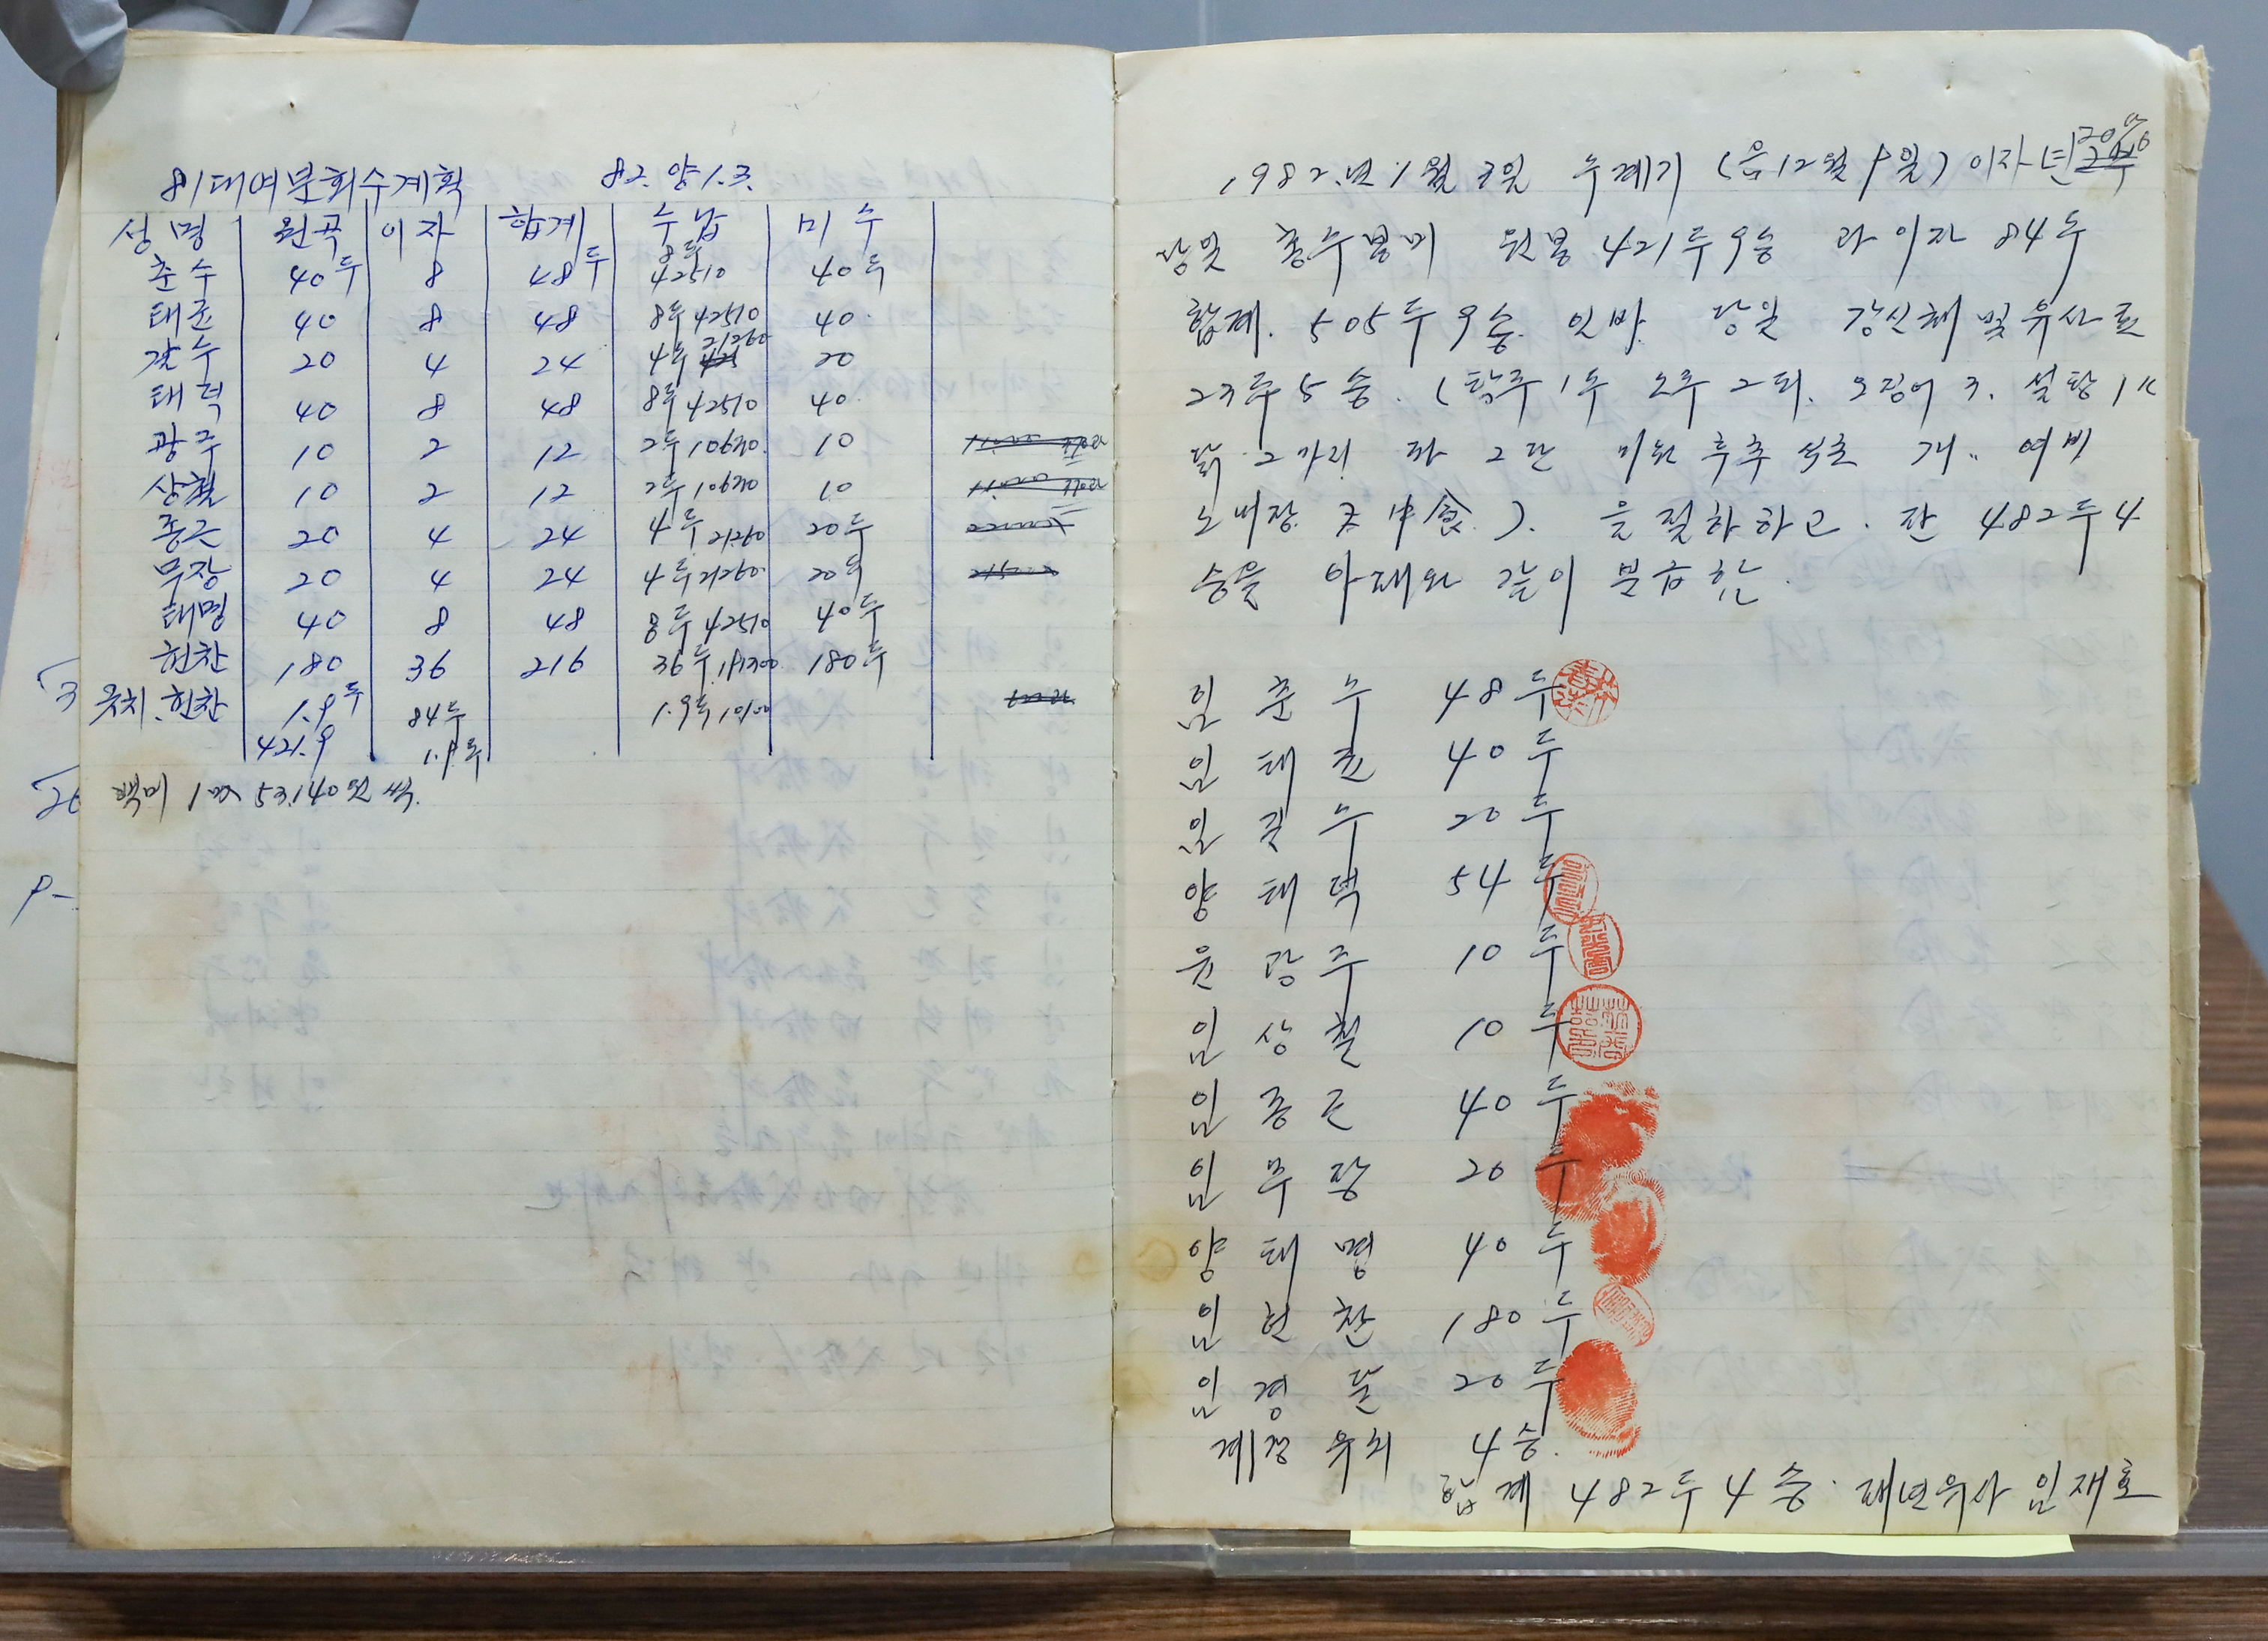 81대여분회수계획 82. 양1.3.
성명 원곡 이자 합계 수납 미수
춘수 40두 8 48두 8두 42510 40두
태준 40 8 48 8두 42510 40
갑수 20 4 24 4두 21260 20
태덕 40 8 48 8두 42510 40
광주 10 2 12 2두 10630 10
상철 10 2 12 2두 10630 10
종근 20 4 24 4두 21260 20두
무장 20 4 24 4두 21260 20두
태명 40 8 48 8두 42510 40두
현찬 180 36 216 36두 191300 180두
유치. 현찬 1.9두 84두 1.9두 10100
421.9 1.9두
백미 1 53.140원 씩.
1982.년 1월 3일 수계기 (음12월 9일) 이자 년
당일 총수봉미 원봉 421두9승 과 이자 84두
합계. 505두9승 인바. 당일 강신채 및 유사료
23두5승. (탁주 1두 소주 2되. 오징어 3. 설탕 1K
닭 2마리 파 2단 미원 후추 석초 개.. 여비
노배장 中食). 을 절하하고. 잔 482두4
승을 아래와 같이 분급함.
임춘수 48두
임태준 40두
임갑수 20두
양태덕 54두
윤광주 10두
임상철 10두
임종근 40두
임무장 20두
양태명 40두
임현찬 180두
임경달 20두
계장유치 4승.
합계 482두4승. 래년유사 임재호